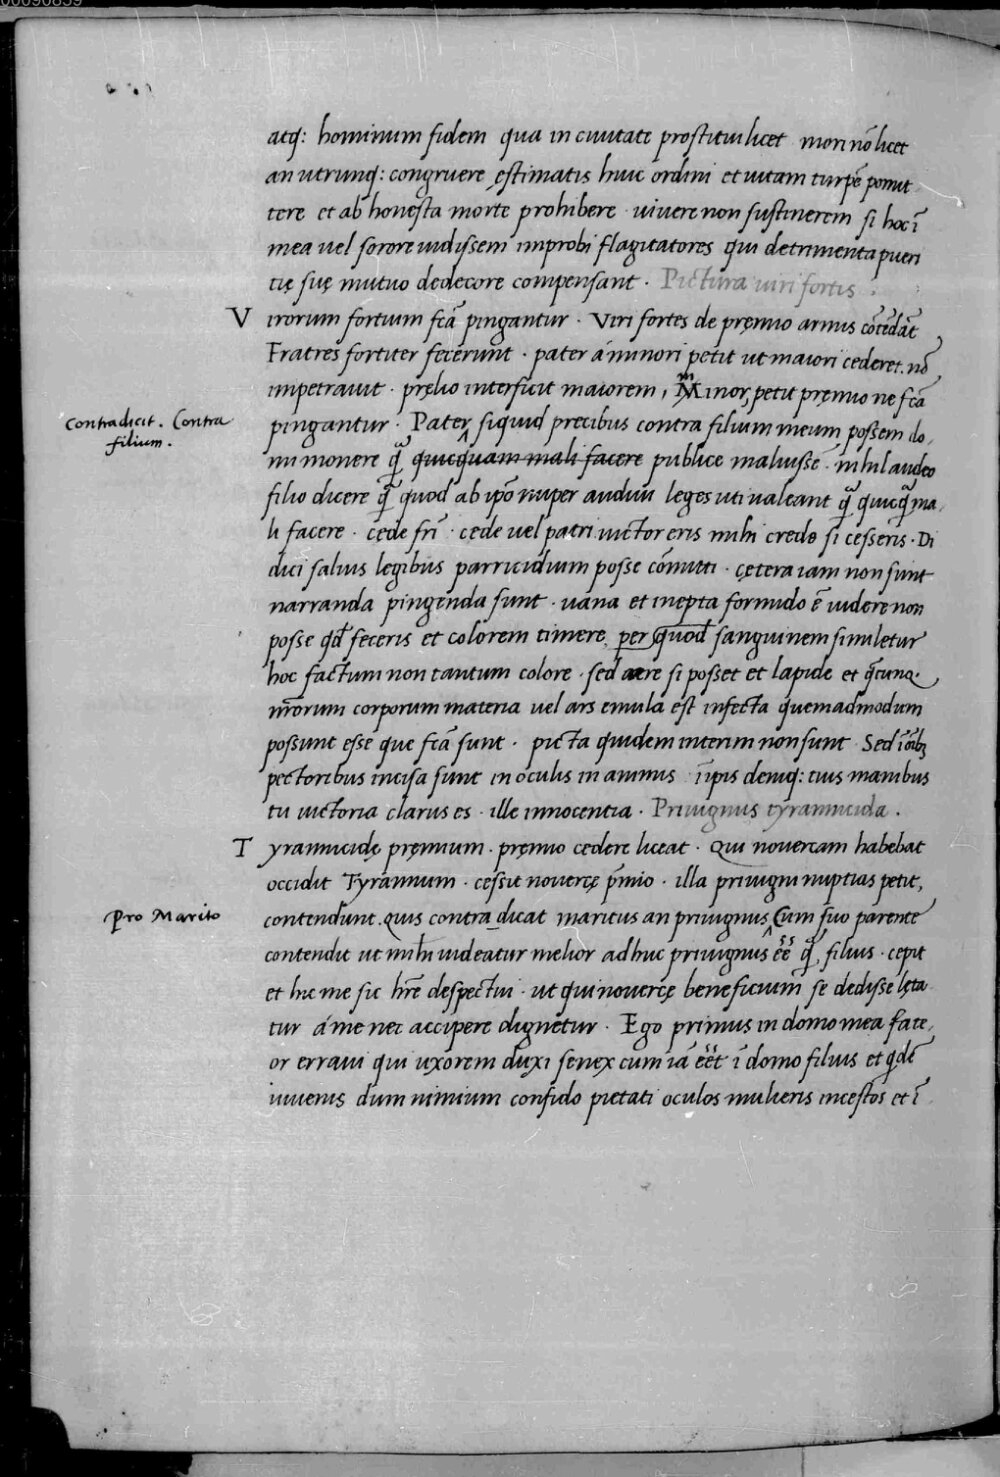 00090859
atq: hominum fidem qua in ciuitate prostitui licet mori nō licet
an utrunq: congruere ęstimatis huic ordini et uitam turpē permit
tere et ab honesta morte prohibere · uiuere non sustinerem si hoc ī
mea uel sorore uidissem improbi flagitatores qui detrimenta pueri
tię suę mutuo dedecore compensant · Pictura uiri fortis .
V irorum fortium fcā pingantur · Viri fortes de pręmio armis cōtēdāt
Fratres fortiter fecerunt · pater á minori petit ut maiori cederet . nō
impetrauit · pręlio interficit maiorem , Minor, petit pręmio ne fcā
Contradicit . Contra
filium .
pingantur · Pater, siquid precibus contra filium meum possem do,
mi monere q̄ quicquam mali facere publice maluissē · nihil audeo
filio dicere q̄ quod ab ipō nuper audiui leges uti ualeant q̄ quicq̄ ma,
li facere · cede frī · cede uel patri uictor eris mihi crede si cesseris · Di
dici saluis legibus parricidium posse cōmitti · cętera iam non sunt
narranda pingenda sunt · uana et inepta formido ē uidere non
posse qd̄ feceris et colorem timere, per quod sanguinem similetur
hoc factum non tantum colore · sed aere si posset et lapide et q̄cunq.
nr̄orum corporum materia uel ars emula est infecta quemadmodum
possunt esse que fcā sunt · picta quidem interim non sunt · Sed ī oīb;
pectoribus incisa sunt in oculis in animis īipis deniq: tuis manibus
tu uictoria clarus es · ille innocentia · Priuignus tyrannicida .
T yrannicidę pręmium · pręmio cedere liceat · Qui nouercam habebat
occidit Tyrannum · cessit nouercę p̄mio · illa priuigni nuptias petit,
Pro Marito
contendunt . quis contra dicat maritus an priuignus, Cum suo parente
contendit ut mihi uideatur melior adhuc priuignus eē q̄, filius · cepit
et hic me sic hr̄e despectui · ut qui nouercę beneficium se dedisse lęta
tur á me nec accipere dignetur · Ego primus in domo mea fate,
or erraui qui uxorem duxi senex cum iā eēt ī domo filius et q̄dē
iuuenis dum nimium confido pietati oculos mulieris incestos et ī